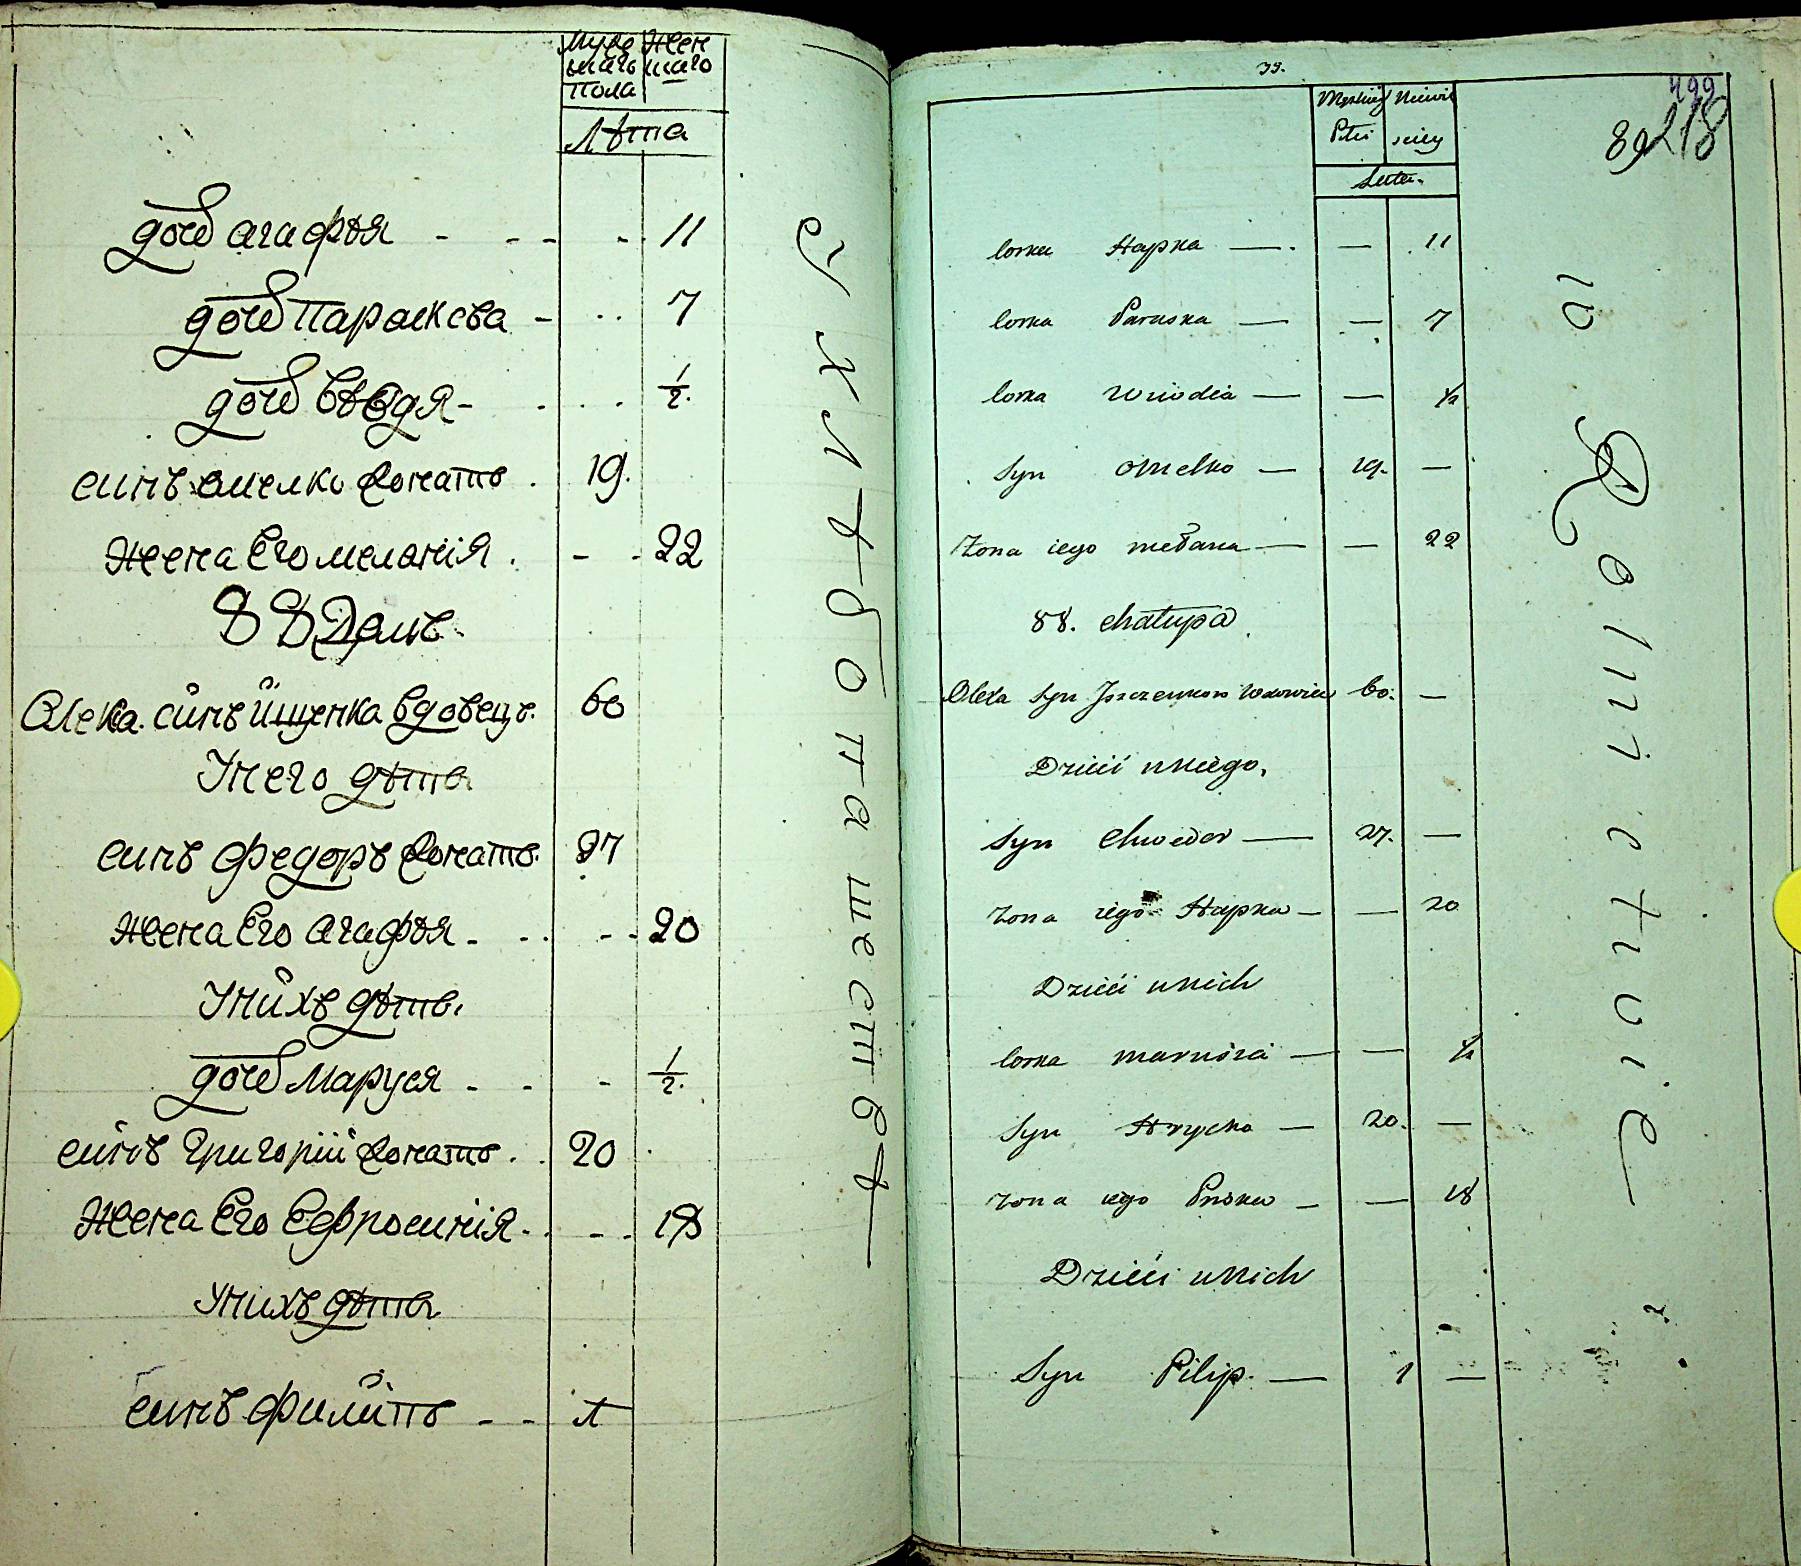 Муже Жен
скаго скаго
Пола
Лѣта
дочь агафѣя - - - - 11
дочь Параскева - - - 7
дочь Евѳодя - - - - 1/2.
синъ омелко женатъ . 19.
жена Его меланія . - - 22
88 Домъ
Олекса синъ ищенка вдовецъ. 60
Унего дѣти
синъ федоръ женатъ. 27
жена Его агафѣя - - - - 20
Унихъ дѣти.
дочь Маруся - - - 1/2.
синъ григорій женатъ . 20
жена Его Еѳвросинія - - - 18
Унихъ дѣти
синъ филипъ - - 1
У хлѣбопашествѣ
39.
499
89 218
Męskiey Niewie
Płci sciey
Lata.
Corka Hapka — — 11
Corka Paraska — — 7
Corka Wiwdia — — 1/2
Syn Omelko — 19. —
Żona iego Mełana — — 22
88. Chałupa
Olexa Syn Jszczenkow Wdowiec 60. —
Dzieci uniego.
Syn Chwedor — 27. —
Żona iego Hapka — — 20
Dzieci unich
Corka Marusia — — 1/2
Syn Hrycko — 20. —
Żona iego Pryska — — 18
Dzieci unich
Syn Pilip — 1 —
w Rolnictwie